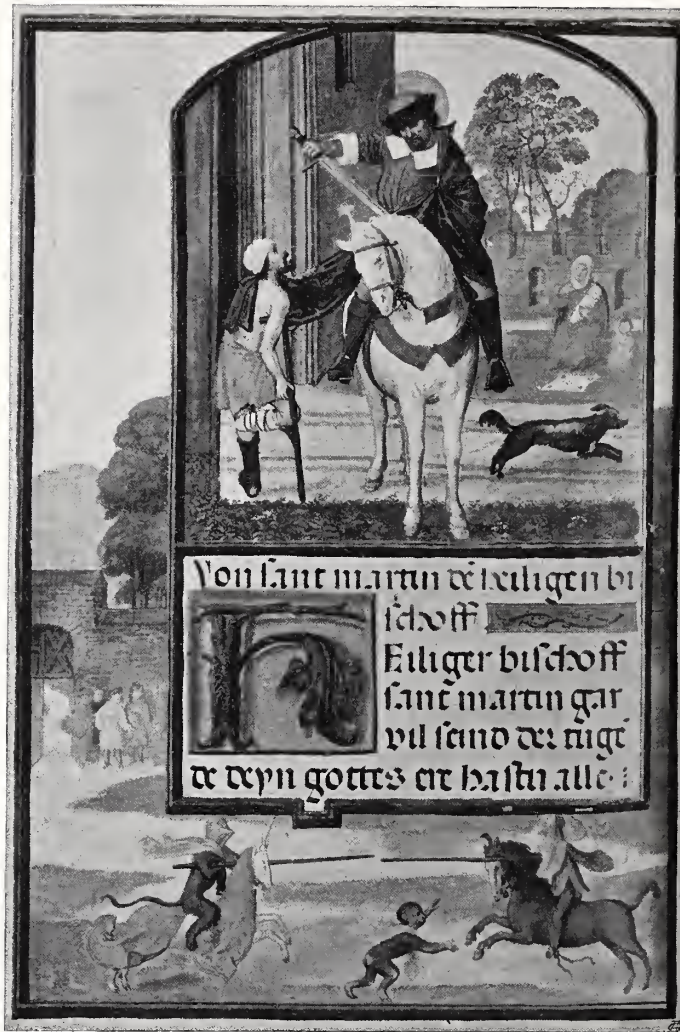 Von sant martin dē heiligen bi
schoff
Eiliger bischoff
sant martin gar
vil seind der tugē
de deyn gottes ere hastu alle